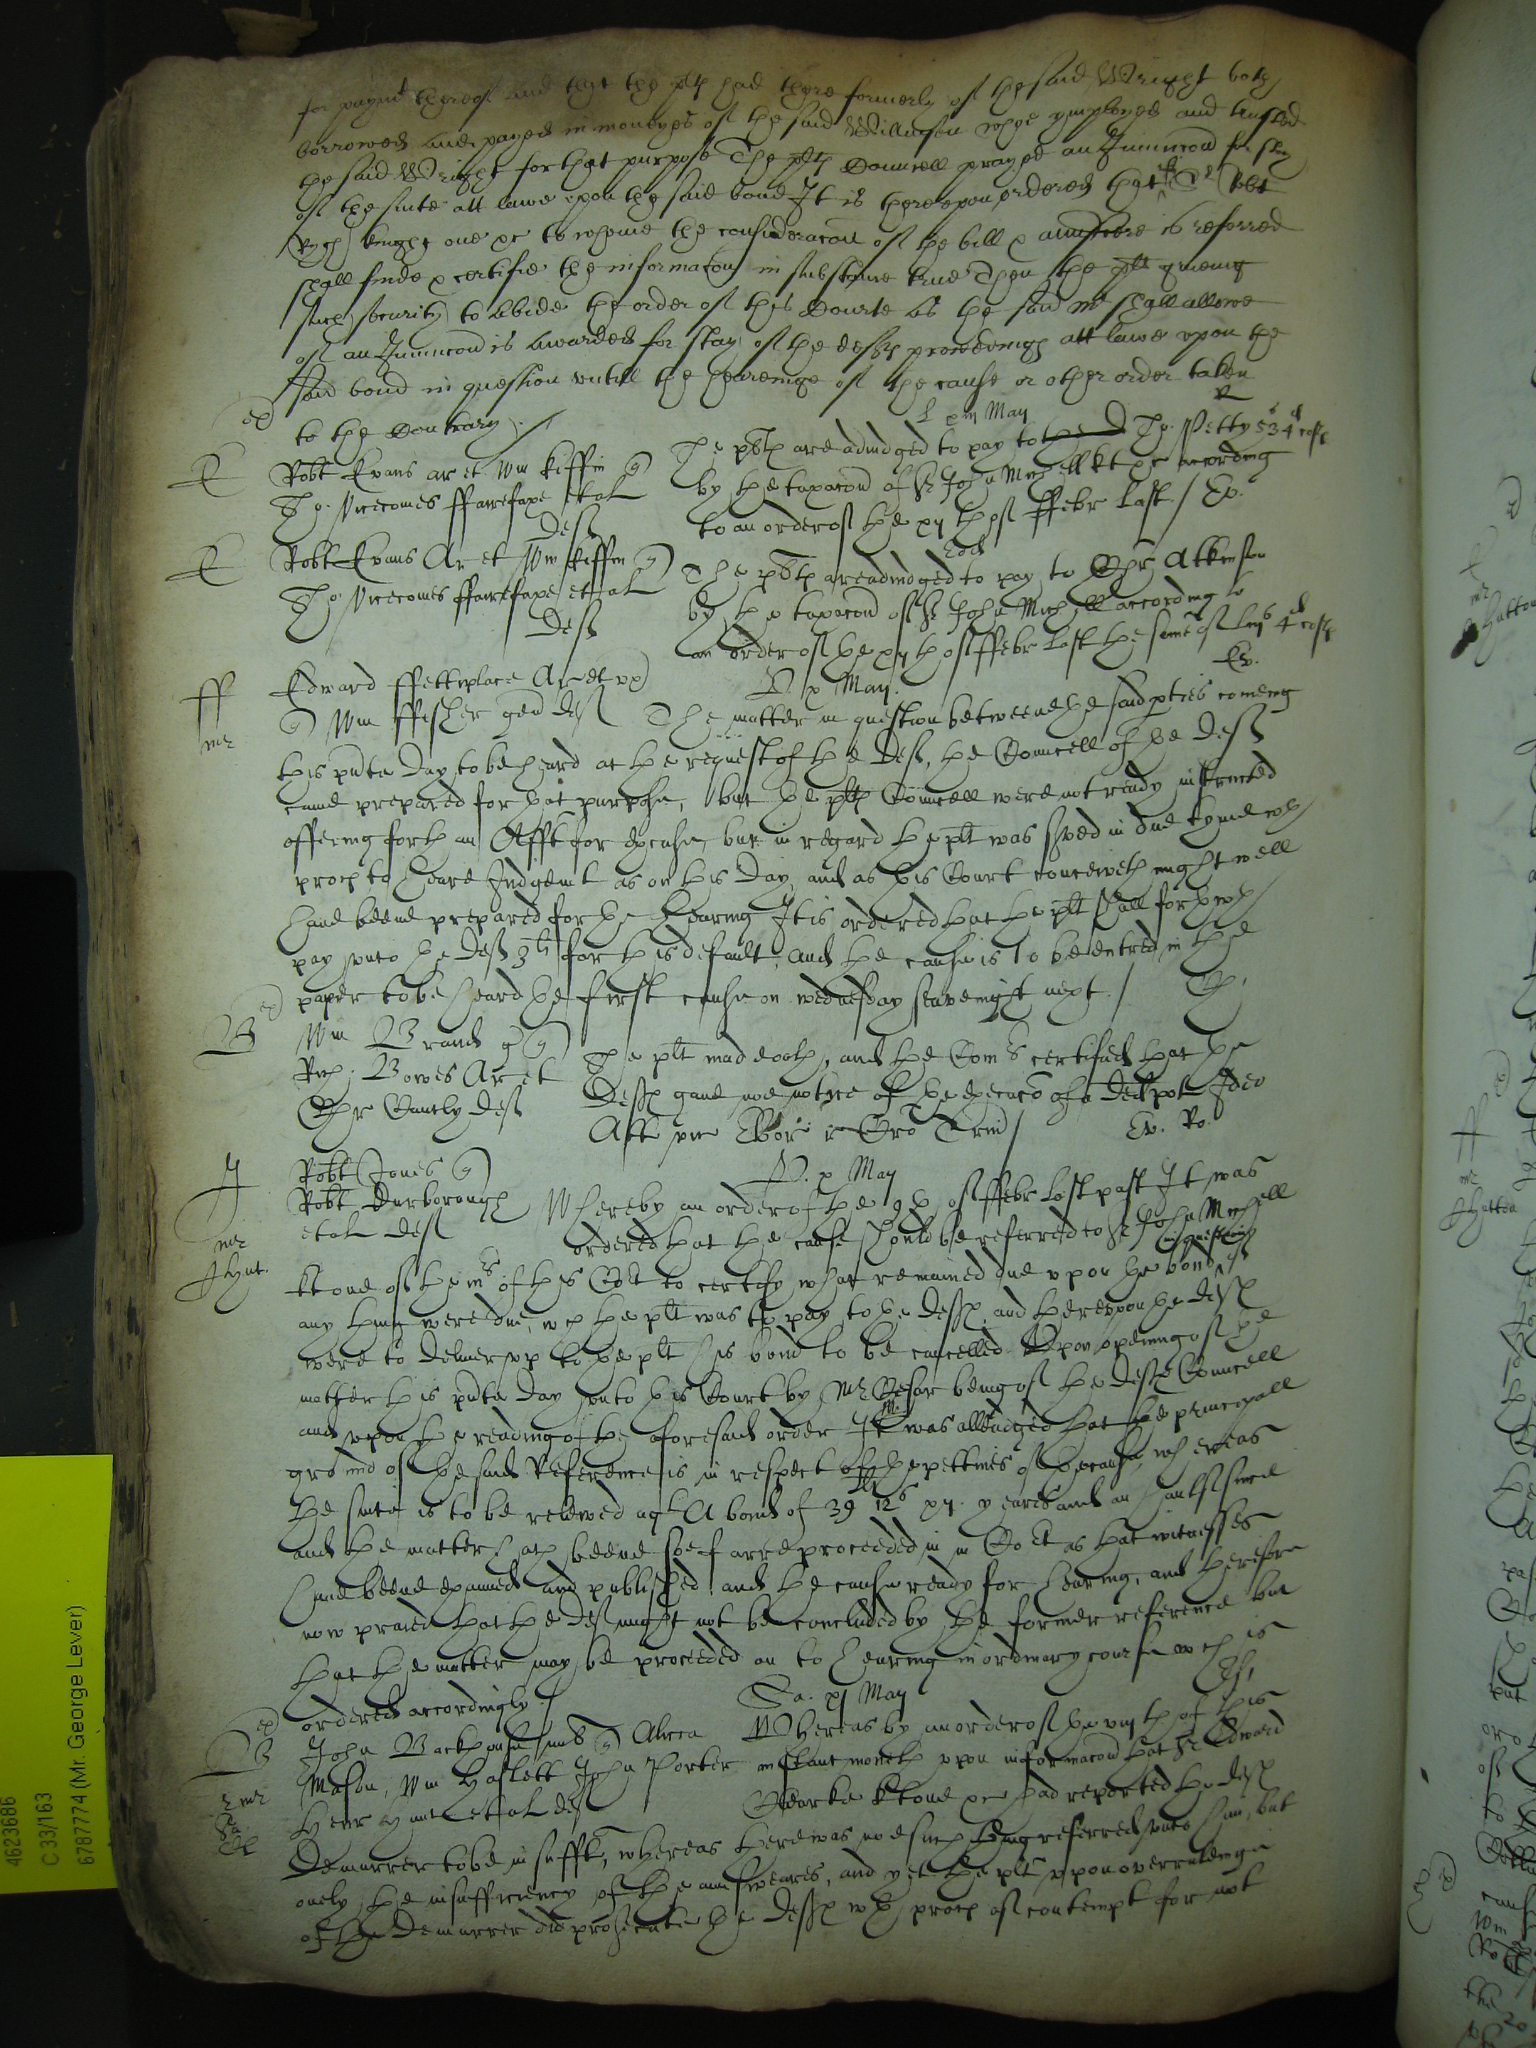 for paymt thereof and that the plt had there formerly of the said Wright both
borrowed and payed in moneyes of the said Willmson whoe ymployed and trusted
the said Wright for that purpose The plts Councell prayed an Iniunccon for stay
of the suite att lawe vpon the said bond It is therevpon ordered that if Sr Robt
Rych knight one &c to whome the consideracon of the bill & answere is referred
shall finde & certifie the informacon in substance true Then the plt giueing
such security to abide the order of this Courte as the said mr shall allowe
of an Iniunccon is awarded for stay of the defts proceedings att lawe vpon the
said bond in question vntill the heareinge of the cause or other order taken
to the Contrary
E Robt Evans ar et Wm Kiffin q
Tho: Vicecomes ffairefaxe et al
Deft
xvij May
The plts are adiudged to pay to Tho: Petty 53s 4d costs
by the taxacon of Sr John Michell kt &c according
to an order of the xijth of ffebr last / Ex.
E Robt Evans Ar et Wm Kiffin q
Tho: Vicecomes ffairefaxe et al
Deft
Eod
The plts are adiudged to pay to Chr Atkinson
by the taxacon of Sr John Michell according to
an order of the xijth of ffebr last the some of 4d costs
Ex.
ff Edward ffettiplace Ar et vx
mr q Wm ffisher gen Deft
x May.
The matter in question betweene the said pties comeing
this pnte day to be heard at the request of the Deft, the Councell of the Deft
came prepared for that purpose, but the plts Councell were not ready instructed
offering forth an Afft for excuse, but in regard the plt was served in due tyme wth
proces to heare Iudgemt as on this day, and as this Court conceiveth might well
haue beene prepared for the hearing It is ordered that the plt shall forthwth
pay vnto the Deft 3li for this default, and the cause is to be entred in the
paper to be heard the first cause on wednesday seavenight next /
B Wm Brand q
Rich: Bowes Ar et
Chr Cantly Deft
The plt made oath, and the Comrs certified that the
Defts gaue noe notice of the execucon of a Ded pot Ideo
Att vic Ebor r Cro Trin / Ex. Ro.
J Robt Jones q
Robt Durborough
et al Deft
mr
x May
Whereby an order of the 9th of ffebr last past It was
ordered that the cause should be referred to Sr John Michell
kt one of the mrs of this Cort to certify what remained due vpon the bond in question if
any thing were due, wch the plt was to pay to the Defts, and therevpon the Defts
were to deliver vp to the plt his bond to be cancelled Vpon opening of the
matter this pnte day vnto this Court by Mr Cesar being of the Defts Councell
and vpon the reading of the aforesaid order It was alleadged that the principall
ground of the said Reference is in respect of the pettines of the cause, whereas
the suite is to be releived agt A bond of 39li 12s xij yeares and an half since
and the matter hath beene soe farre proceeded in in Cort as that witnesses
haue beene exained and published and the cause ready for hearing, and therefore
now praied that the Deft might not be concluded by the former reference but
that the matter may be proceeded on to hearing in ordinary course wch is
ordered accordingly /
B John Backhouse q Alicia
Mason, Wm Haslett John Porter
Henr Hunt et al Deft
Sa. xj May
Whereas by an order of the viijth of this
instant moneth vpon informacon that Sr Edward
Clearke kt one &c had reported the Defts
Demurrer to be insufft, whereas there was noe such thing referred vnto him, but
onely the insufficiency of the answeares, and yet the plts vpon overruleing
of the Demurrer did prosecute the Defts wth proces of contempt for not
4623686
C 33/163
6787774 (Mr. George Lever)